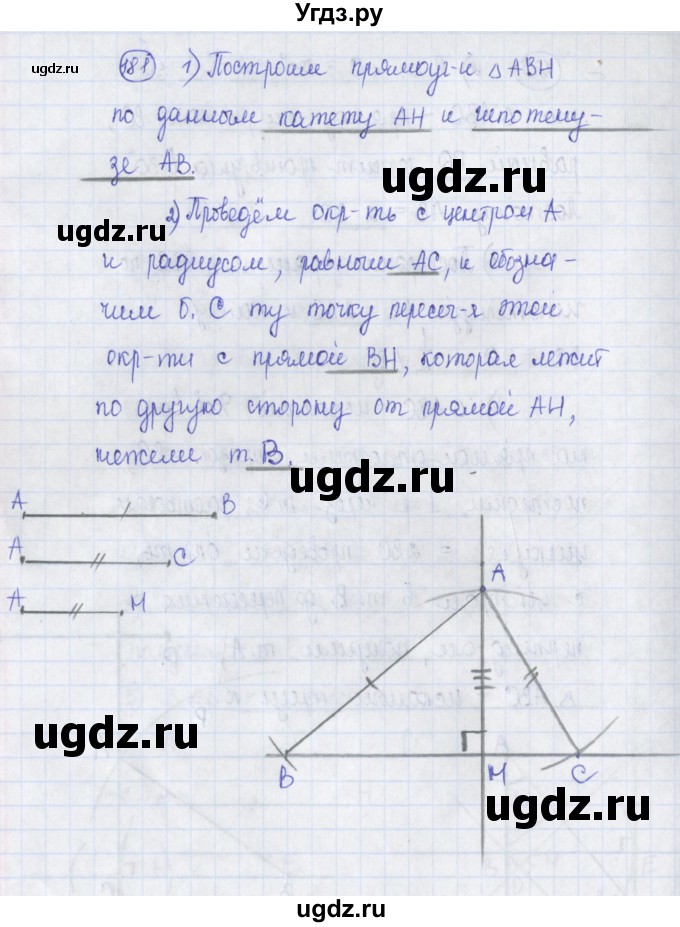 Угдз.ру
181 1) Построим прямоуг-й △ABH
по данным катету AH и гипотену-
зе AB.
2) Проведём окр-ть с центром A
и радиусом, равным AC, и обозна-
чим б. C ту точку пересеч-я этой
окр-ти с прямой BH, которая лежит
по другую сторону от прямой AH,
нежели т. B.
A B
A C
A H
A
B H C
ugdz.ru
ugdz.ru
ugdz.ru
ugdz.ru
ugdz.ru
ugdz.ru
ugdz.ru